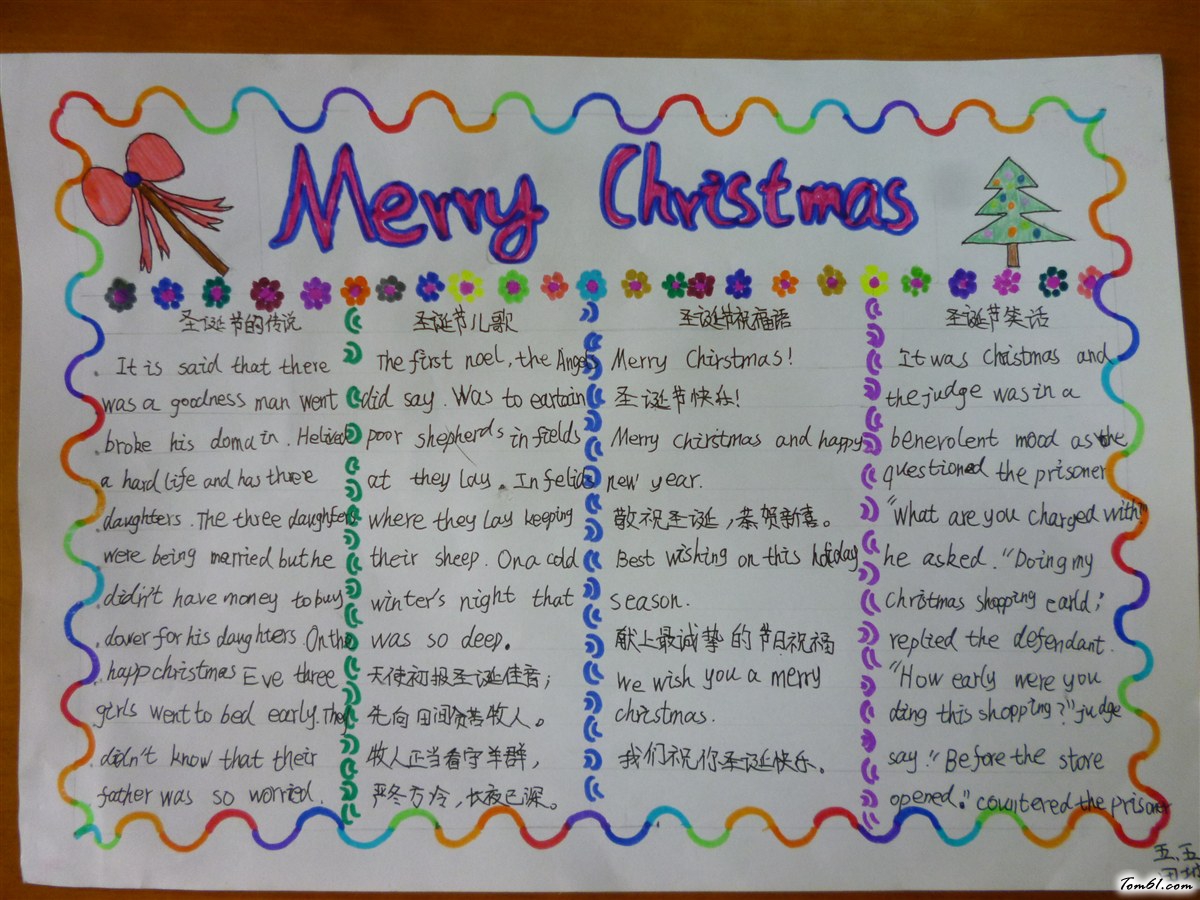 Merry Christmas
圣诞节的传说
It is said that there
was a goodness man went
broke his domain. He lived
a hard life and has three
daughters. The three daughters
were being married but he
didn't have money to buy
dower for his daughters. On the
happ christmas Eve three
girls went to bed early. They
didn't know that their
father was so worried.
圣诞节儿歌
The first noel, the Angels
did say. Was to eartain
poor shepherds in fields
at they lay. In felids
where they lay keeping
their sheep. On a cold
winter's night that
was so deep.
天使初报圣诞佳音；
先向田间贫苦牧人。
牧人正当看守羊群，
严冬方冷，长夜已深。
圣诞节祝福语
Merry Chirstmas!
圣诞节快乐!
Merry chirstmas and happy
new year.
敬祝圣诞，恭贺新喜。
Best wishing on this holiday
season.
献上最诚挚的节日祝福
We wish you a merry
christmas.
我们祝你圣诞快乐。
圣诞节笑话
It was Christmas and
the judge was in a
benevolent mood as the
questioned the prisoner
"What are you charged with"
he asked. "Doing my
Christmas shopping
replied the defendant.
"How early were you
ding this shopping?" judge
say. "Before the store
opened." countered the prisoner
五、五
Tom61.com